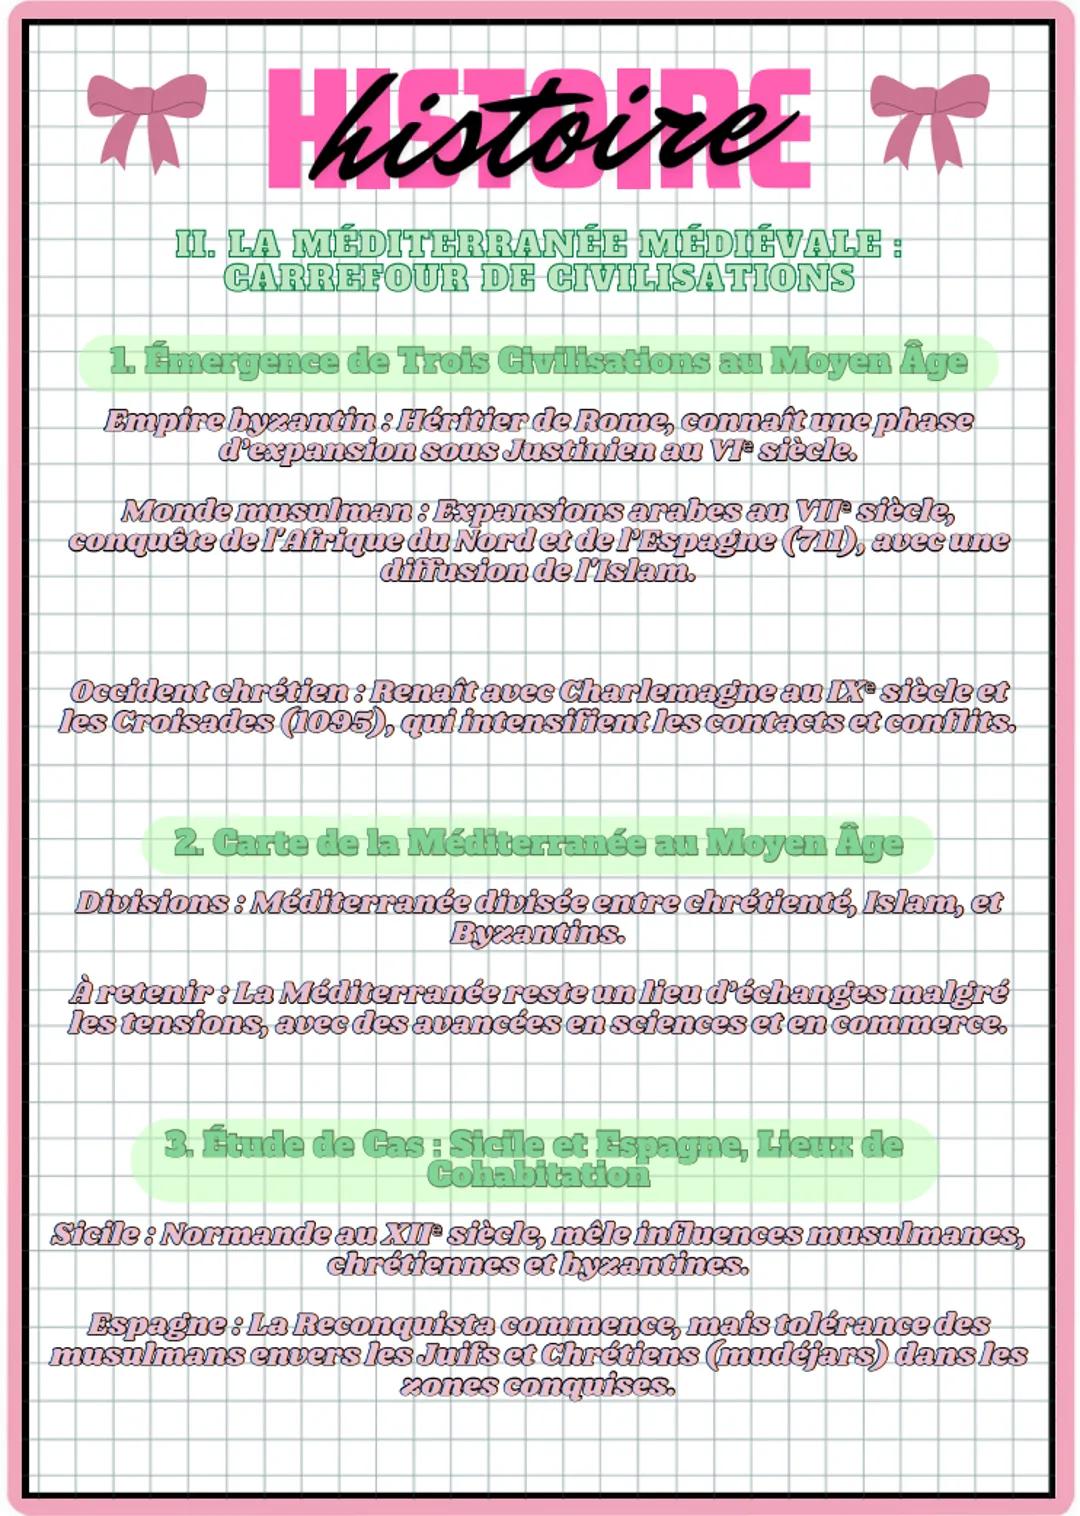 HISTOIRE
histoire
II. LA MÉDITERRANÉE MÉDIÉVALE :
CARREFOUR DE CIVILISATIONS
1. Émergence de Trois Civilisations au Moyen Âge
Empire byzantin : Héritier de Rome, connaît une phase
d'expansion sous Justinien au VIᵉ siècle.
Monde musulman : Expansions arabes au VIIᵉ siècle,
conquête de l'Afrique du Nord et de l'Espagne (711), avec une
diffusion de l'Islam.
Occident chrétien : Renaît avec Charlemagne au IXᵉ siècle et
les Croisades (1095), qui intensifient les contacts et conflits.
2. Carte de la Méditerranée au Moyen Âge
Divisions : Méditerranée divisée entre chrétienté, Islam, et
Byzantins.
À retenir : La Méditerranée reste un lieu d'échanges malgré
les tensions, avec des avancées en sciences et en commerce.
3. Étude de Cas : Sicile et Espagne, Lieux de
Cohabitation
Sicile : Normande au XIIᵉ siècle, mêle influences musulmanes,
chrétiennes et byzantines.
Espagne : La Reconquista commence, mais tolérance des
musulmans envers les Juifs et Chrétiens (mudéjars) dans les
zones conquises.